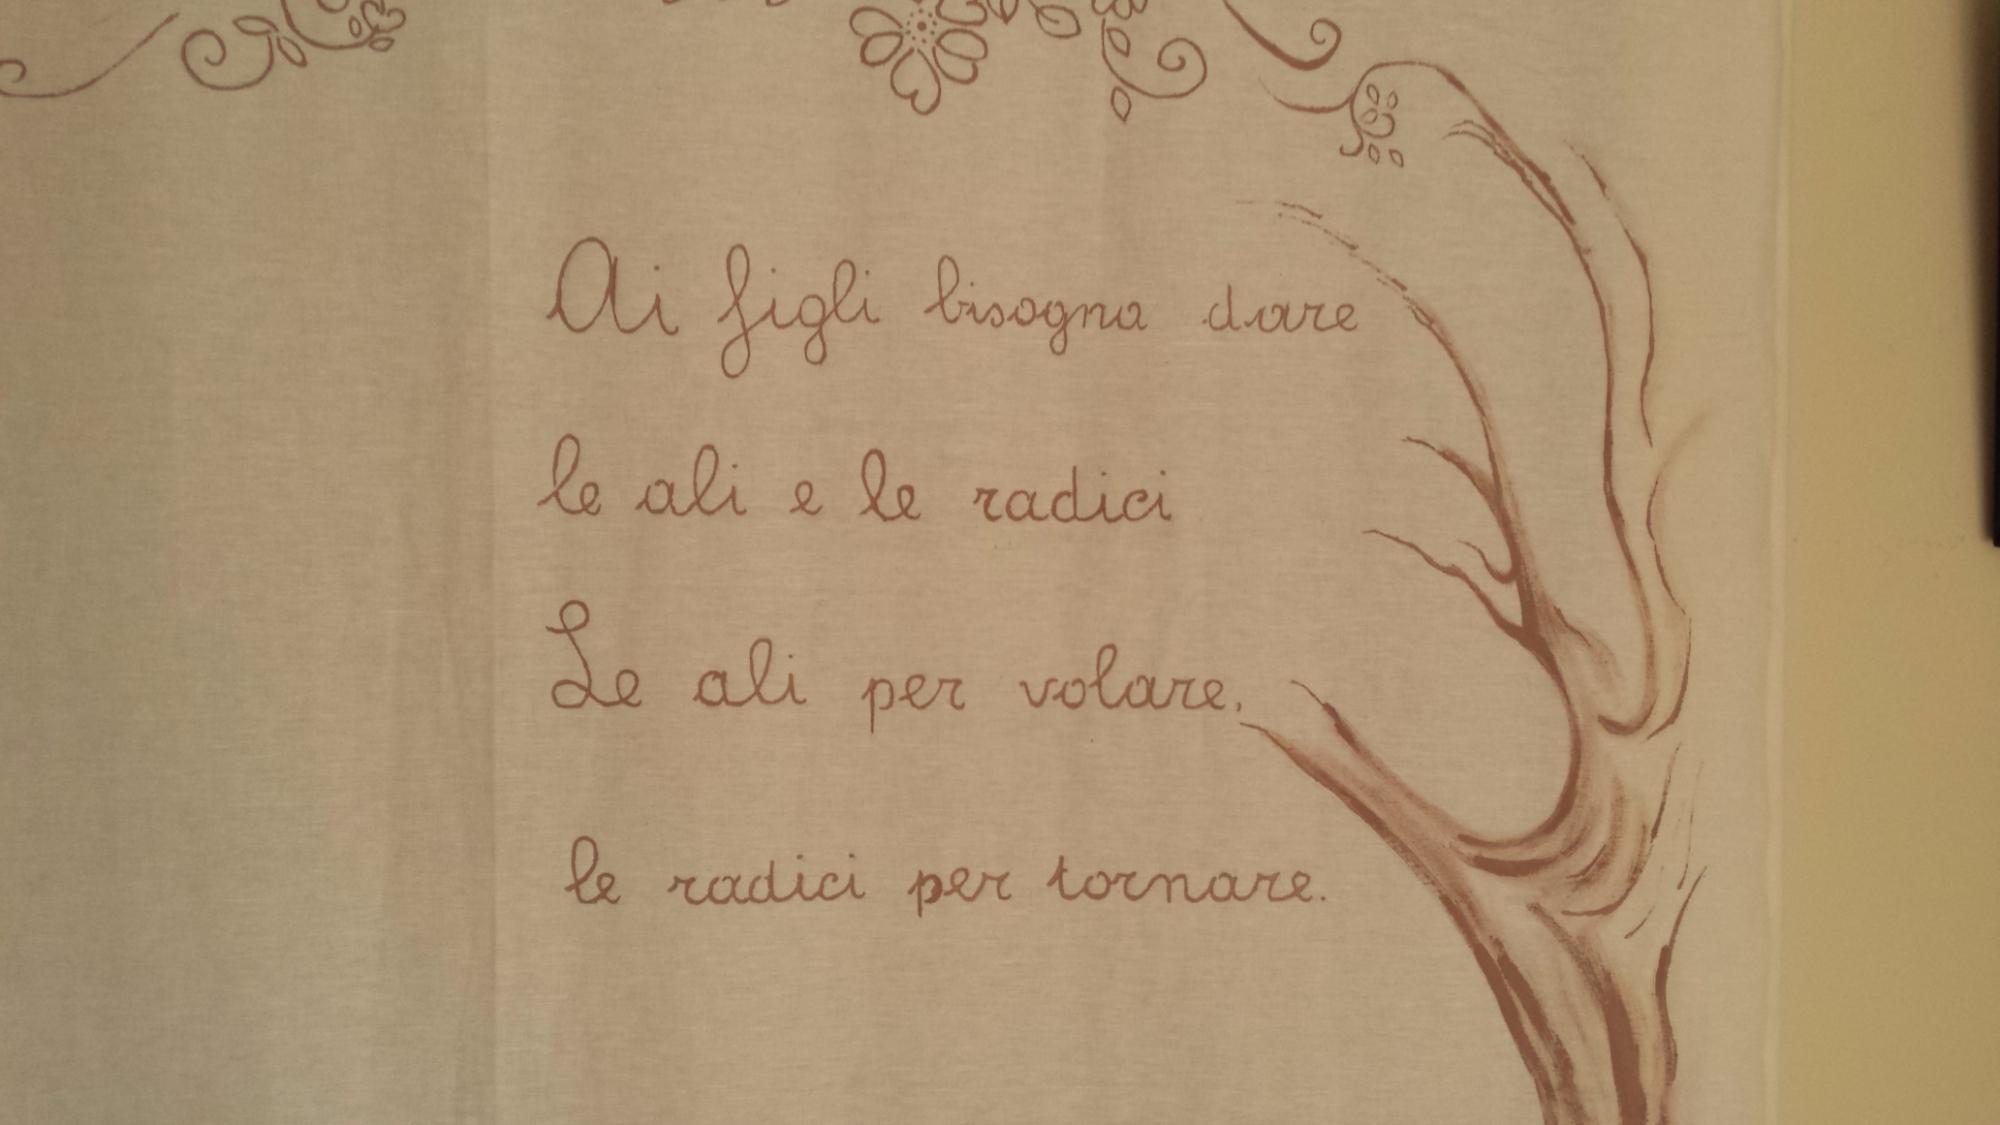 Ai figli bisogna dare
le ali e le radici
Le ali per volare,
le radici per tornare.